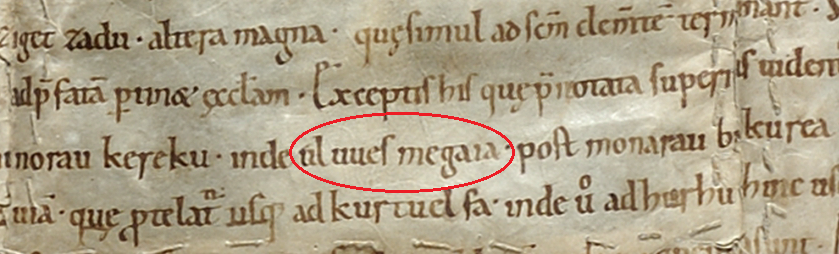 ziget zadu · altera magna · quę simul ad scm̄ clem̄te
adp̄ fatā ꝑtinæ ęccłam · Exceptis his quę p̄notata superi us uident
monarau kereku · inde ul uues megaia · post monarau bukurea
uiā · quę ꝓtelat usq; ad kurtuel fa · inde ů ad hurhu hinc